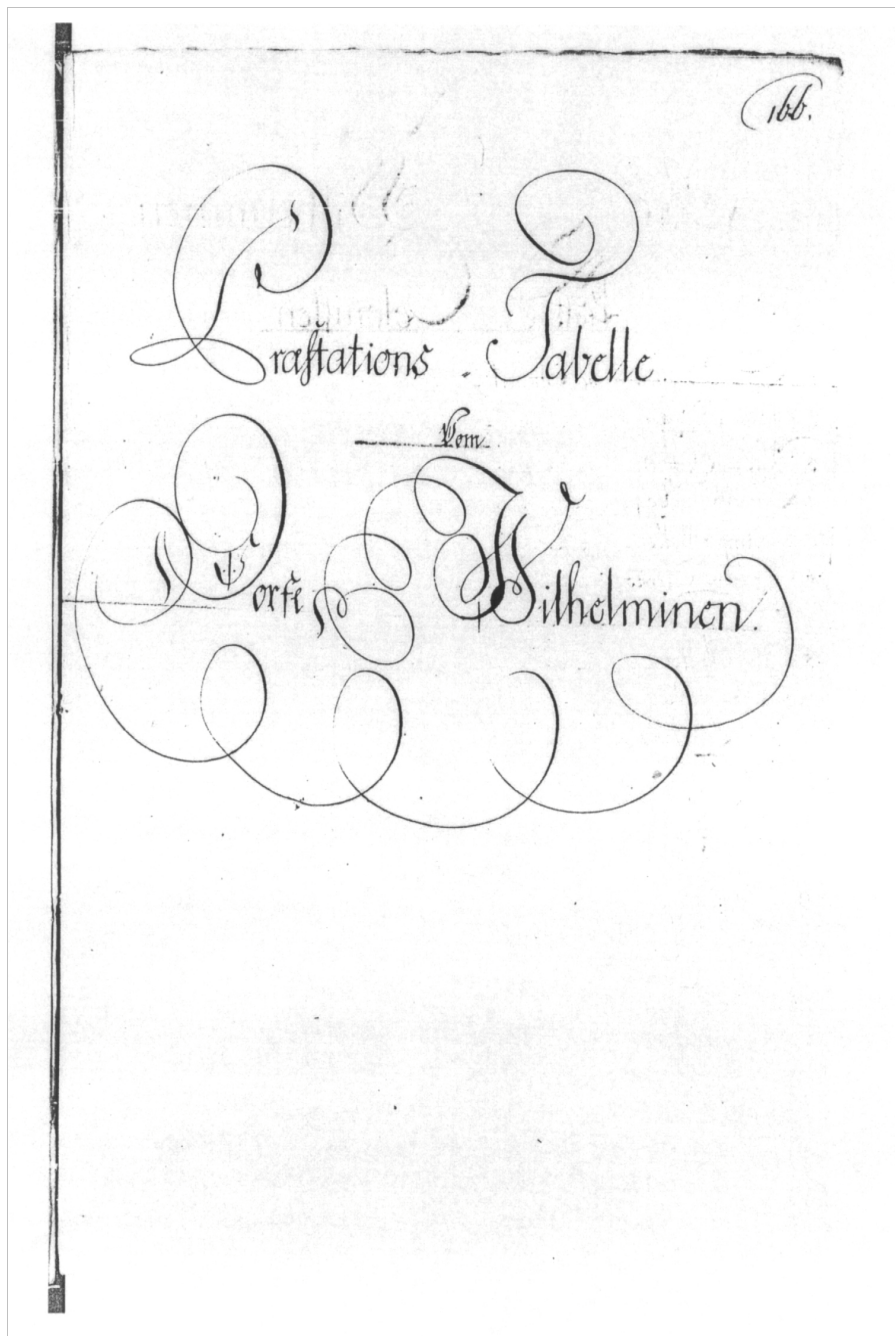 166.
Præstations-Tabelle
Vom
Dorfe Wilhelminen.